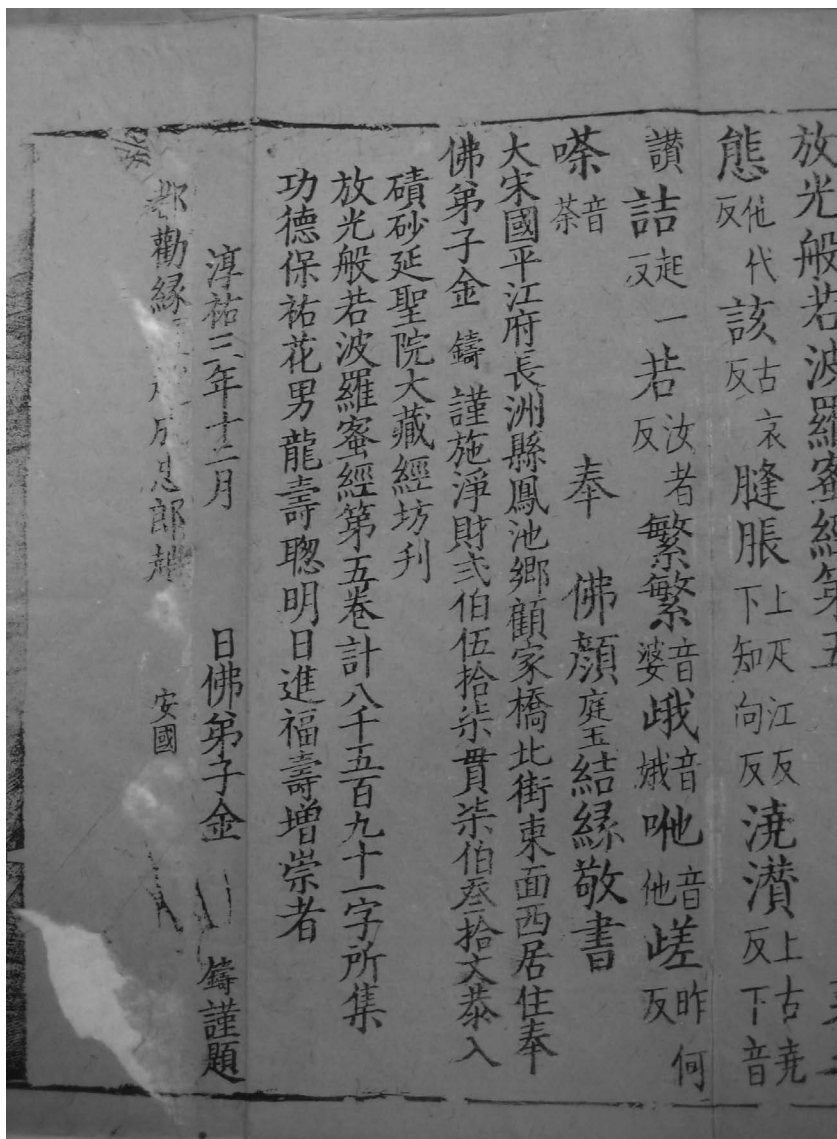 放光般若波羅蜜經第五
態他代反 該古哀反 膖脹上疋江反下知向反 澆灒上古堯反下音
讚 詰起一反 若汝者反 繁繁音婆 峨音娥 吔音他 嵯昨何反
嗏音茶 奉 佛顏庭玉結緣敬書
大宋國平江府長洲縣鳳池鄉顧家橋北街東面西居住奉
佛弟子金 鑄 謹施淨財弍伯伍拾柒貫柒伯叁拾文恭入
磧砂延聖院大藏經坊刋
放光般若波羅蜜經第五卷計八千五百九十一字所集
功德保祐花男龍壽聦明日進福壽增崇者
淳祐三年十二月 日佛弟子金 鑄謹題
都勸緣 成忠郎趙 安國